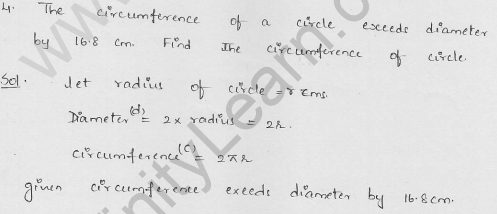 4. The circumference of a circle exceeds diameter
by 16.8 cm. Find the circumference of circle.
Sol. Let radius of circle = r cms.
Diameter (d) = 2 x radius = 2r.
circumference (C) = 2πr
given circumference exceeds diameter by 16.8cm.
InfinityLearn.com